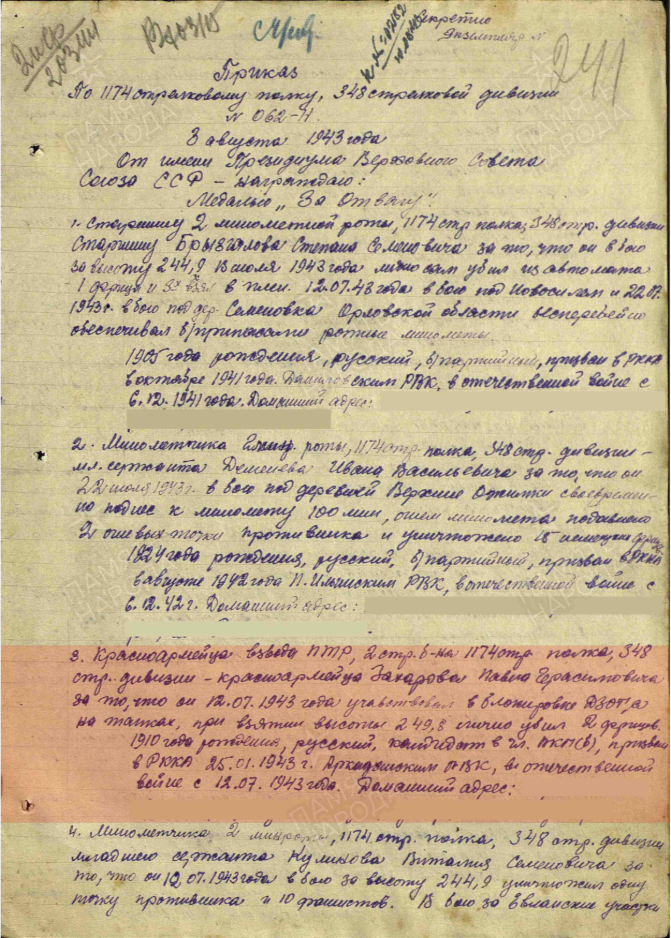 Секретно
Экземпляр №
241
Приказ
По 1174 стрелковому полку, 348 стрелковой дивизии
N 062-Н.
8 августа 1943 года
От имени Президиума Верховного Совета
Союза ССР – награждаю:
Медалью „За Отвагу".
1. Старшину 2 минометной роты, 1174 стр. полка, 348 стр. дивизии
старшину Степана Семеновича за то, что он в бою
за высоту 244,9 июля 1943 года лично сам убил из автомата
1 фрица и взял в плен. 12.07.43 года в бою под Новосилем и 22.07.
1943 г. в бою под дер. Семеновка Орловской области бесперебойно
обеспечивал б/припасами ротные минометы.
1905 года рождения, русский, б/партийный, призван в РККА
в октябре 1941 года. Даниловским РВК, в отечественной войне с
6.12.1941 года. Домашний адрес:
2. Минометчика роты, 1174 стр. полка, 348 стр. дивизии –
мл. сержанта Ивана Васильевича за то, что он
22 июля 1943 г. в бою под деревней Верхние своевремен-
но поднес к миномету 100 мин, огнем миномета подавлено
2 огневых точки противника и уничтожено 15 немецких
1924 года рождения, русский, б/партийный, призван в РККА
в августе 1942 года П. Ильинским РВК, в отечественной войне с
6.12.42 г. Домашний адрес:
3. Красноармейца взвода ПТР, 2 стр. б-на 1174 стр. полка, 348
стр. дивизии – красноармейца Захарова Павла Герасимовича
за то, что он 12.07.1943 года участвовал в блокировке ДЗОТ'а
на танках, при взятии высоты 249,8 лично убил 2 фрицев.
1910 года рождения, русский, кандидат в чл. ВКП(б), призван
в РККА 25.01.1943 г. РВК, в отечественной
войне с 12.07.1943 года. Домашний адрес:
4. Минометчика 2 минроты, 1174 стр. полка, 348 стр. дивизии
младшего сержанта Куликова Виталия Семеновича за
то, что он 12.07.1943 года в бою за высоту 244,9 уничтожил одну
точку противника и 10 фашистов. В бою за участки